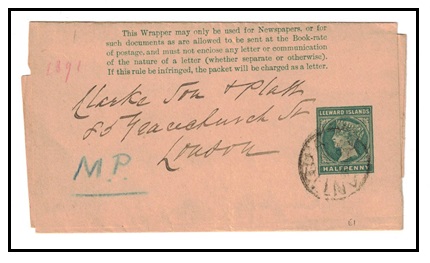 This Wrapper may only be used for Newspapers, or for
such documents as are allowed to be sent at the Book-rate
of postage, and must not enclose any letter or communication
of the nature of a letter (whether separate or otherwise).
If this rule be infringed, the packet will be charged as a letter.
1891
Clarke Son & Platt
85 Gracechurch St
London
M.P.
LEEWARD ISLANDS
HALFPENNY
ANTI